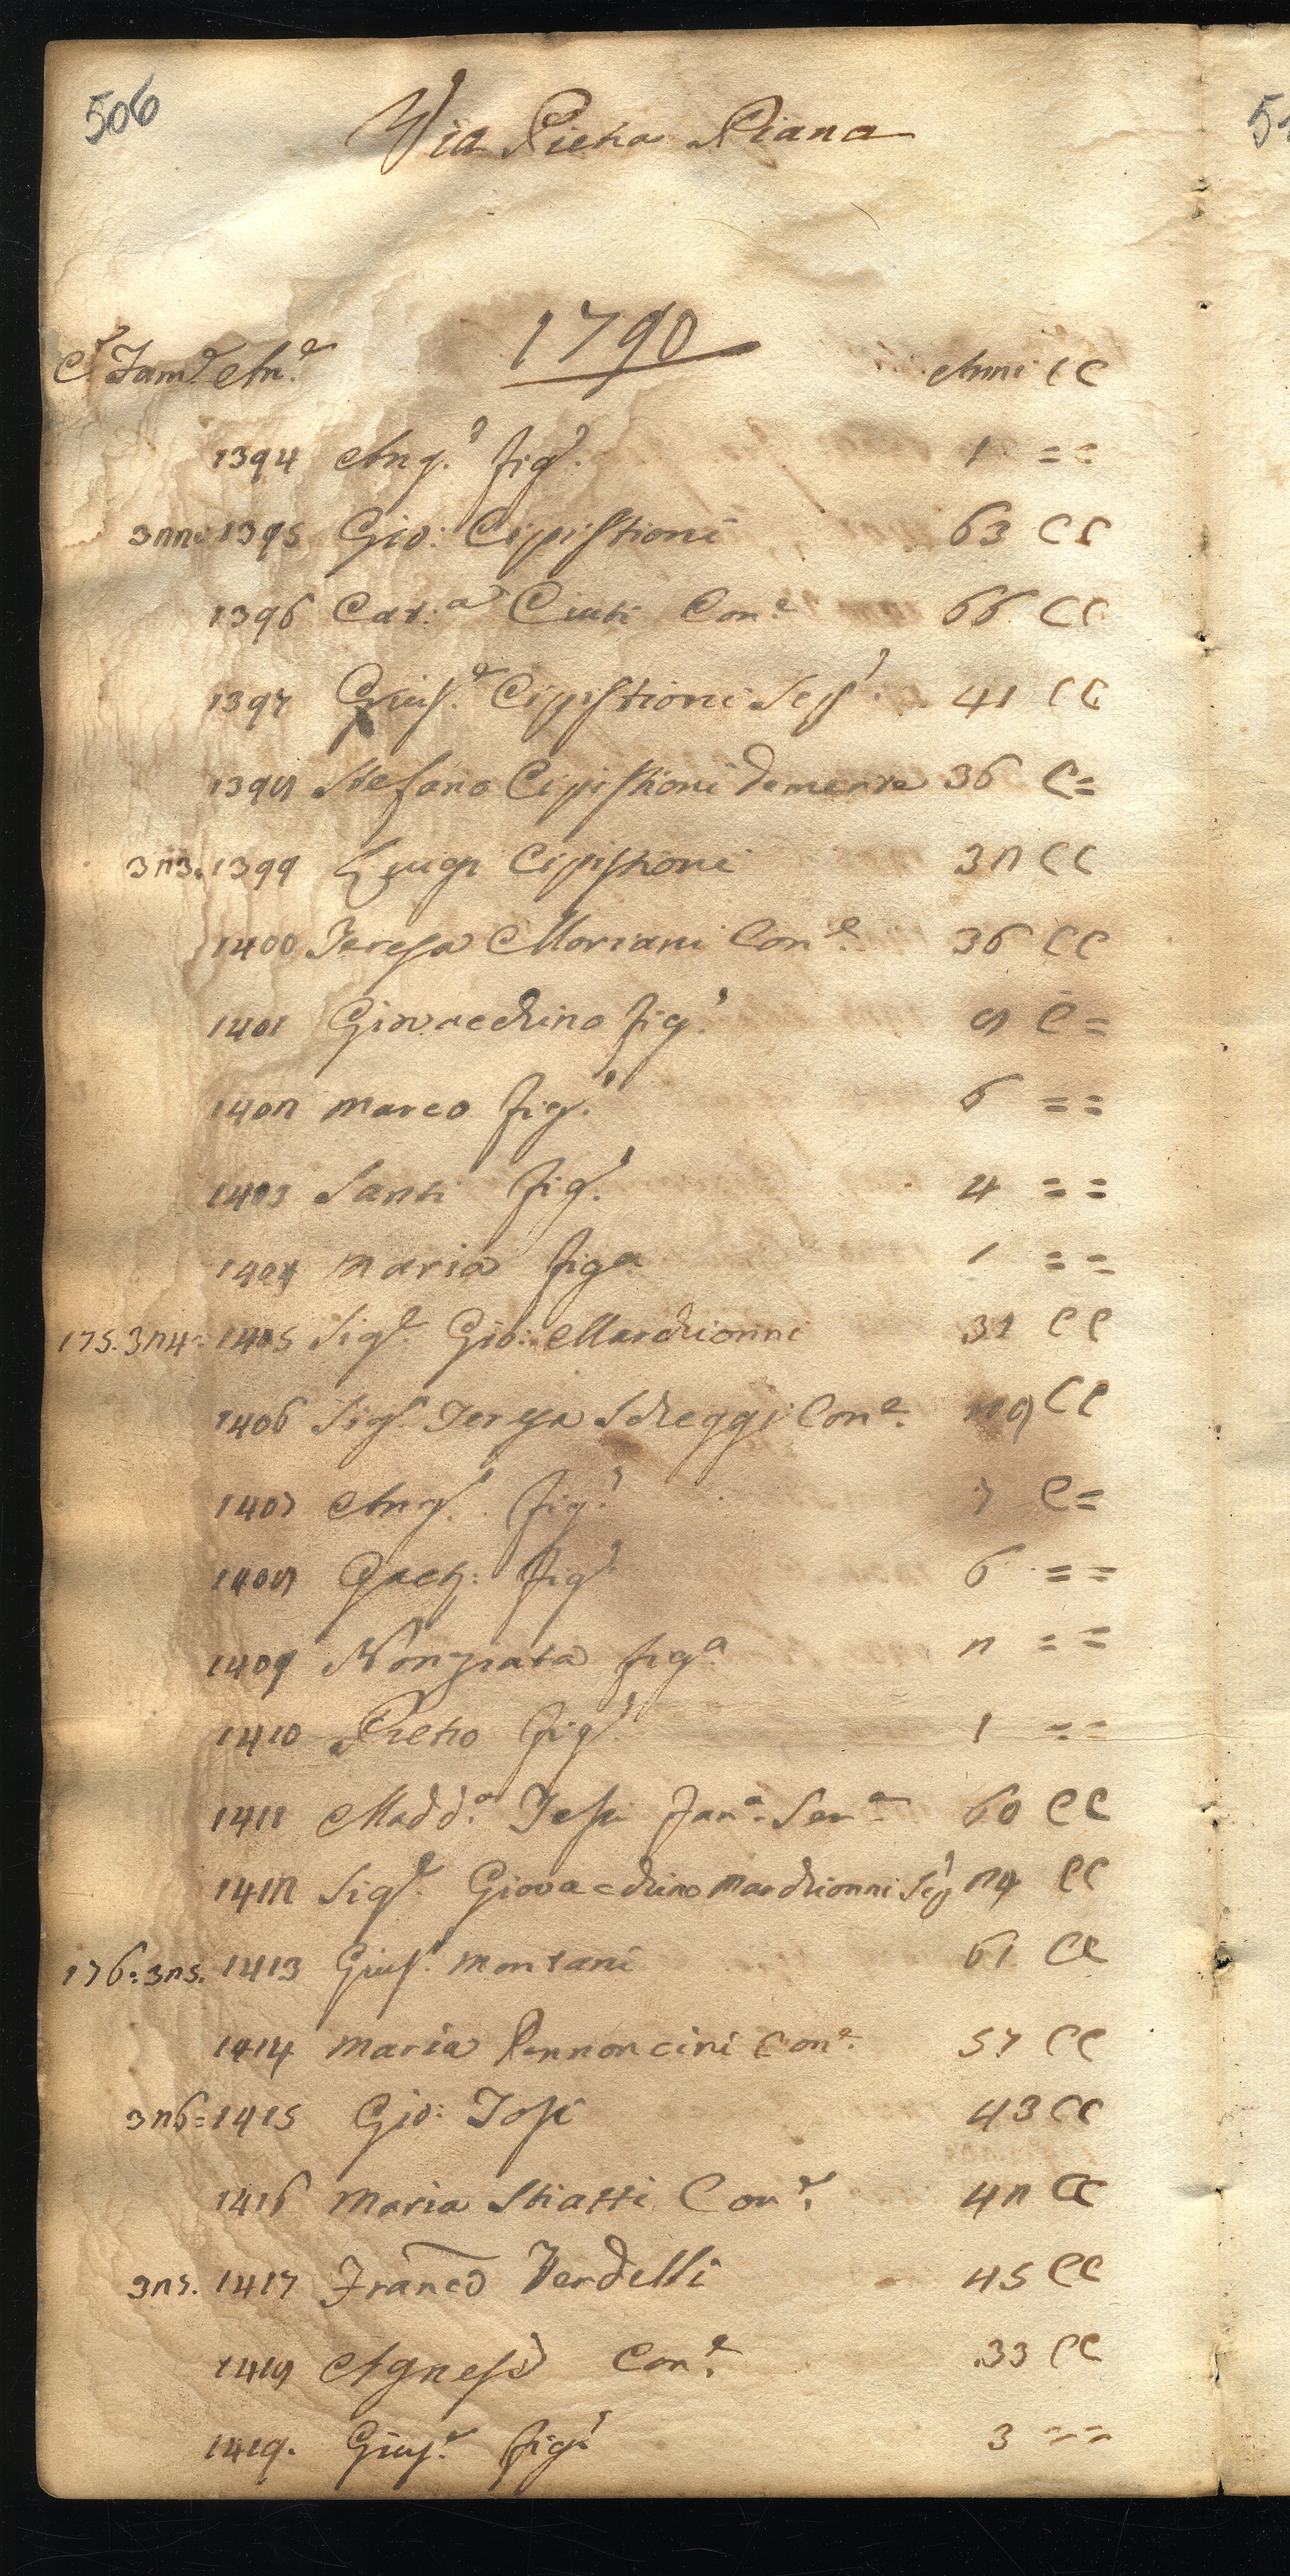 506
Via Pietra Piana
1790
C.e Fam.e An.e Anni C C
1394 Ang.o fig.o 1 = =
322: 1395 Gio: Cipistrioni 63 C C
1396 Cat.a Ciuti Con.e 66 C C
1397 Gius.e Cipistrioni Seg.o 41 C C
1398 Stefano Cipistrioni demente 36 C =
323. 1399 Luigi Cipistrioni 32 C C
1400 Teresa Moriani Con.e 36 C C
1401 Giovacchino fig.o 8 C =
1402 Marco fig.o 6 = =
1403 Santi fig.o 4 = =
1404 Maria fig.a 1 = =
175. 324: 1405 Sig.e Gio: Marchionni 31 C C
1406 Sig.a Teresa Scheggi Con.e 29 C C
1407 Ang.o fig.o 7 C =
1408 Gaet: fig.o 6 = =
1409 Nonziata fig.a 2 = =
1410 Pietro fig.o 1 = =
1411 Madd.a Tesi Ser.a 60 C C
1412 Sig.e Giovacchino Marchionni Seg.o 24 C C
176: 325. 1413 Gius.e Montani 61 C C
1414 Maria Pennoncini Con.e 57 C C
326: 1415 Gio: Tosi 43 C C
1416 Maria Stiatti Con.e 42 C C
1417 Franco Verdelli 45 C C
1418 Agnesa Con.e 33 C C
1419. Gius.e fig.o 3 = =